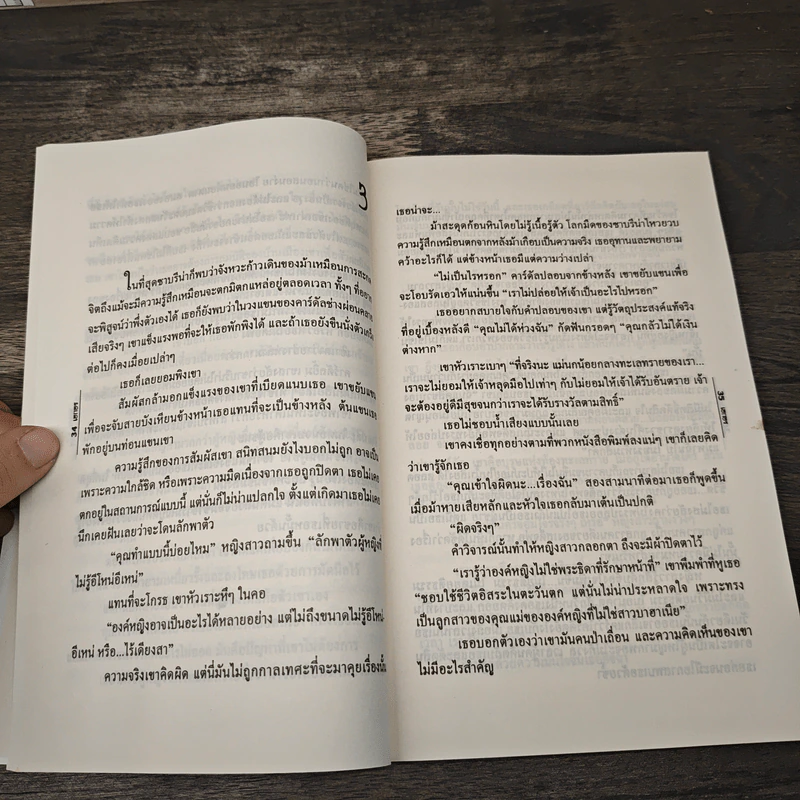 3
ในที่สุดซาบรีน่าก็พบว่าจังหวะก้าวเดินของม้าเหมือนการสะกด
จิตถึงแม้จะมีความรู้สึกเหมือนจะตกมิตกแหล่อยู่ตลอดเวลา ทั้งๆ ที่อยาก
จะพิสูจน์ว่าพึ่งตัวเองได้ เธอก็ยังพบว่าในวงแขนของคาร์ดัลช่างผ่อนคลาย
เสียจริงๆ เขาแข็งแรงพอที่จะให้เธอพักพิงได้ และถ้าเธอยังขืนนั่งตัวเกร็ง
ต่อไปก็คงเมื่อยเปล่าๆ
เธอก็เลยยอมพิงเขา
สัมผัสกล้ามอกแข็งแรงของเขาที่เบียดแนบเธอ เขาขยับแขน
เพื่อจะจับสายบังเหียนข้างหน้าเธอแทนที่จะเป็นข้างหลัง ต้นแขนเธอ
พักอยู่บนท่อนแขนเขา
ความรู้สึกของการสัมผัสเขา สนิทสนมยังไงบอกไม่ถูก อาจเป็น
เพราะความใกล้ชิด หรือเพราะความมืดเนื่องจากเธอถูกปิดตา เธอไม่เคย
ตกอยู่ในสถานการณ์แบบนี้ แต่นั่นก็ไม่น่าแปลกใจ ตั้งแต่เกิดมาเธอไม่เคย
นึกเคยฝันเลยว่าจะโดนลักพาตัว
“คุณทำแบบนี้บ่อยไหม” หญิงสาวถามขึ้น “ลักพาตัวผู้หญิงที่
ไม่รู้อีโหน่อีเหน่”
แทนที่จะโกรธ เขาหัวเราะหึๆ ในคอ
“องค์หญิงอาจเป็นอะไรได้หลายอย่าง แต่ไม่ถึงขนาดไม่รู้อีโหน่
อีเหน่ หรือ...ไร้เดียงสา”
ความจริงเขาคิดผิด แต่นี่มันไม่ถูกกาลเทศะที่จะมาคุยเรื่องนั้น
34
เธอน่าจะ...
ม้าสะดุดก้อนหินโดยไม่รู้เนื้อรู้ตัว โลกมืดของซาบรีน่าไหวยวบ
ความรู้สึกเหมือนตกจากหลังม้าเกือบเป็นความจริง เธออุทานและพยายาม
คว้าอะไรก็ได้ แต่ข้างหน้าเธอมีแต่ความว่างเปล่า
“ไม่เป็นไรหรอก” คาร์ดัลปลอบจากข้างหลัง เขาขยับแขนเพื่อ
จะโอบรัดเอวให้แน่นขึ้น “เราไม่ปล่อยให้เจ้าเป็นอะไรไปหรอก”
เธออยากสบายใจกับคำปลอบของเขา แต่รู้วัตถุประสงค์แท้จริง
ที่อยู่เบื้องหลังดี “คุณไม่ได้ห่วงฉัน” กัดฟันกรอดๆ “คุณกลัวไม่ได้เงิน
ต่างหาก”
เขาหัวเราะเบาๆ “ที่จริงนะ แม่นกน้อยกลางทะเลทรายของเรา...
เราจะไม่ยอมให้เจ้าหลุดมือไปเท่าๆ กับไม่ยอมให้เจ้าได้รับอันตราย เจ้า
จะต้องอยู่ดีมีสุขจนกว่าเราจะได้รับรางวัลตามสิทธิ์”
เธอไม่ชอบน้ำเสียงแบบนั้นเลย
เขาคงเชื่อทุกอย่างตามที่พวกหนังสือพิมพ์ลงแน่ๆ เขาก็เลยคิด
ว่าเขารู้จักเธอ
“คุณเข้าใจผิดนะ...เรื่องฉัน” สองสามนาทีต่อมาเธอก็พูดขึ้น
เมื่อม้าหายเสียหลักและหัวใจเธอกลับมาเต้นเป็นปกติ
“ผิดจริงๆ”
คำวิจารณ์นั้นทำให้หญิงสาวกลอกตา ถึงจะมีผ้าปิดตาไว้
“เรารู้ว่าองค์หญิงไม่ใช่พระธิดาที่รักษาหน้าที่” เขาพึมพำที่หูเธอ
“ชอบใช้ชีวิตอิสระในตะวันตก แต่นั่นไม่น่าประหลาดใจ เพราะทรง
เป็นลูกสาวของคุณแม่ของององค์หญิงที่ไม่ใช่สาวบาฮาเนีย”
เธอบอกตัวเองว่าเขามันคนป่าเถื่อน และความคิดเห็นของเขา
ไม่มีอะไรสำคัญ
35